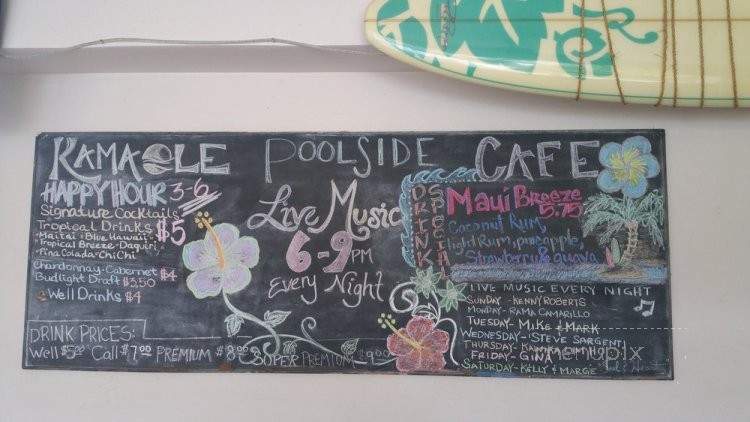 KAMAOLE POOLSIDE CAFE
HAPPY HOUR 3-6
Signature Cocktails
Tropical Drinks $5
• Maitai • Blue Hawaii •
• Tropical Breeze • Daquiri
• Pina Colada • Chi Chi
Chardonnay • Cabernet $4
Budlight Draft $3.50
Well Drinks $4
DRINK PRICES:
Well $5.00 Call $7.00 PREMIUM $8.00 SUPER PREMIUM $9.00
Live Music
6-9 PM
Every Night
DRINK SPECIAL
Maui Breeze
5.75
Coconut Rum,
light Rum, pineapple,
Strawberry & guava
LIVE MUSIC EVERY NIGHT
SUNDAY - KENNY ROBERTS
MONDAY - RAMA CAMARILLO
TUESDAY - MIKE & MARK
WEDNESDAY - STEVE SARGENTI
THURSDAY -
FRIDAY - GINA
SATURDAY - KELLY & MARGIE
Menupix